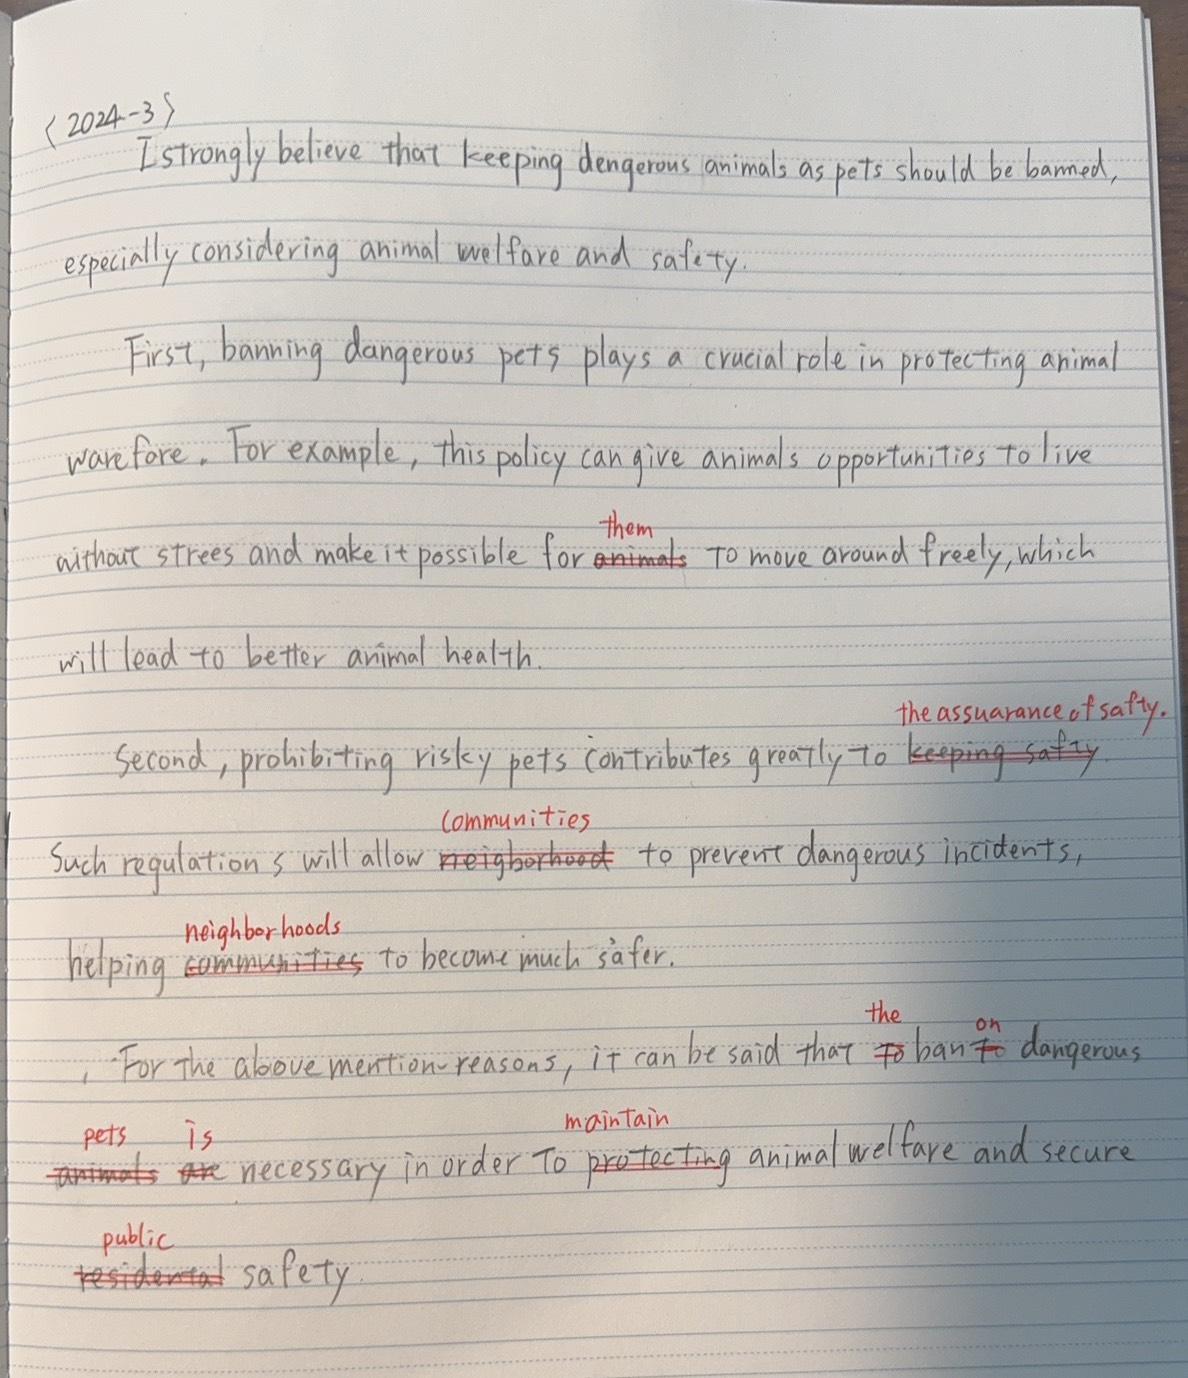 <2024-3>
I strongly believe that keeping dengerous animals as pets should be banned,
especially considering animal welfare and safety.
First, banning dangerous pets plays a crucial role in protecting animal
warefore. For example, this policy can give animals opportunities to live
them
without strees and make it possible for animals to move around freely, which
will lead to better animal health.
the assuarance of safty.
Second, prohibiting risky pets contributes greatly to keeping safty.
communities
Such regulations will allow neigborhood to prevent dangerous incidents,
neighborhoods
helping communities to become much safer.
the on
For the above mention-reasons, it can be said that to ban to dangerous
pets is maintain
animals are necessary in order to protecting animal welfare and secure
public
residental safety.